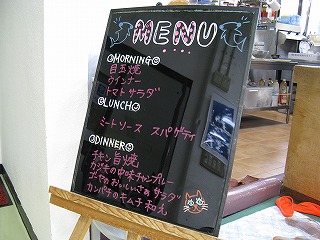 MENU
MORNING
目玉焼
ウインナー
トマトサラダ
LUNCH
ミートソース スパゲティ
DINNER
チキン旨焼
ガメキの中味チャンプレー
ゴーヤのおいしいさぁサラダ
カンパチのキムチ和え